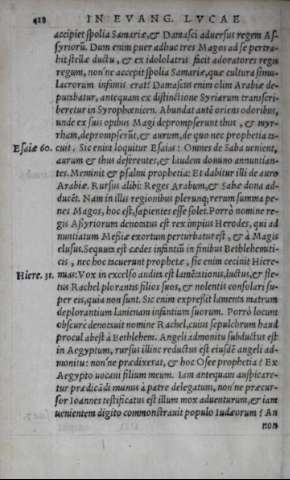 428 IN EVANG. LVCAE
accipiet spolia Samariæ, & Damasci aduersus regem As-
syriorũ. Dum enim puer adhuc tres Magos ad se pertra-
hit stellæ ductu, & ex idololatris facit adoratores regis
regum, non'ne accepit spolia Samariæ, quæ cultura simu-
lacrorum infamis erat? Damascus enim olim Arabiæ de-
putabatur, antequam ex distinctione Syriarum transcri-
beretur in Syrophœnicem. Abundat autẽ oriens odoribus,
unde ex suis opibus Magi deprompserunt thus, & myr-
rham, deprompserũt, & aurum, de quo nec prophetia ta-
Esaiæ 60. cuit. Sic enim loquitur Esaias: Omnes de Saba uenient,
aurum & thus deferentes, & laudem domino annuntian-
tes. Meminit & psalmi prophetia: Et dabitur illi de auro
Arabiæ. Rursus alibi: Reges Arabum, & Sabæ dona ad-
ducẽt. Nam in illis regionibus plerunq; rerum summa pe-
nes Magos, hoc est, sapientes esse solet. Porrò nomine re-
gis Assyriorum denotatus est rex impius Herodes, qui ad
nuntiatum Messiæ exortum perturbatus est, & à Magis
elusus. Sequuta est cædes infantiũ in finibus Bethlehemiti-
cis, nec hoc tacuerunt prophetæ, sic enim cecinit Hiere-
Hiere. 31. mias: Vox in excelso audita est lamẽtationis, luctus, & fle-
tus Rachel plorantis filios suos, & nolentis consolari su-
per eis, quia non sunt. Sic enim expressit lamenta matrum
deplorantium lanienam infantium suorum. Porrò locum
obscurè denotauit nomine Rachel, cuius sepulchrum haud
procul abest à Bethlehem. Angeli admonitu subductus est
in Aegyptum, rursus illinc reductus est eiusdẽ angeli ad-
monitu: non'ne prædixerat, & hoc Osee propheta? Ex
Aegypto uocaui filium meum. Iam antequam auspicare-
tur prædicãdi munus à patre delegatum, non'ne præcur-
sor Ioannes testificatus est illum mox aduenturum, & iam
uenientem digito commonstrauit populo Iudæorum? An
non